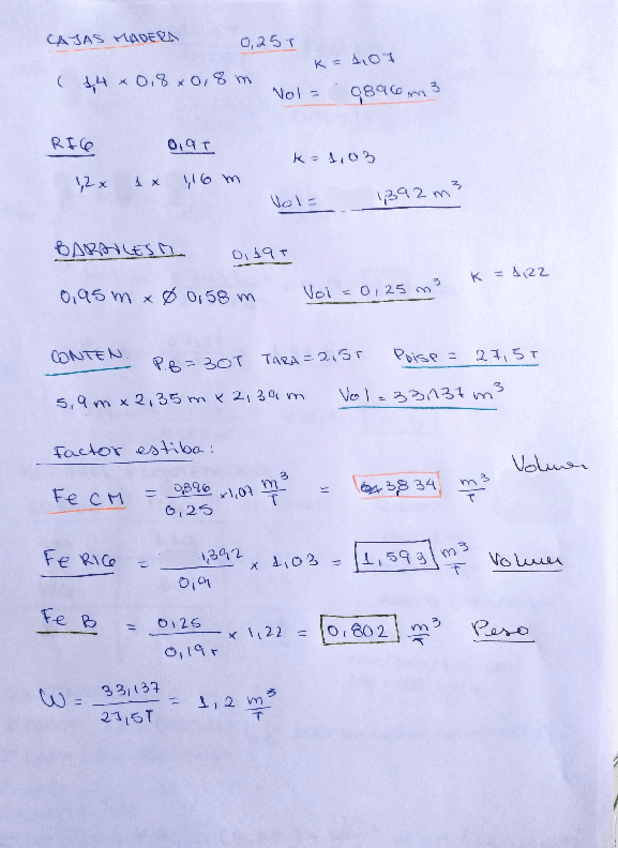 CAJAS MADERA 0,25T
( 1,4 x 0,8 x 0,8 m K = 1,07
Vol = 0,896 m³
RIG 0,9T
1,2 x 1 x 1,16 m K = 1,03
Vol = 1,392 m³
0,19T
0,95 m x Ø 0,58 m Vol = 0,25 m³ K = 1,22
CONTEN. P.B = 30T TARA = 2,5T PDISP = 27,5T
5,9 m x 2,35 m x 2,39 m Vol = 33,137 m³
Factor estiba:
Fe CM = 0,896 / 0,25 x 1,07 m³/T = 3,834 m³/T Volumen
Fe RIG = 1,392 / 0,9 x 1,03 = 1,593 m³/T Volumen
Fe B = 0,25 / 0,19T x 1,22 = 0,802 m³/T Peso
W = 33,137 / 27,5T = 1,2 m³/T